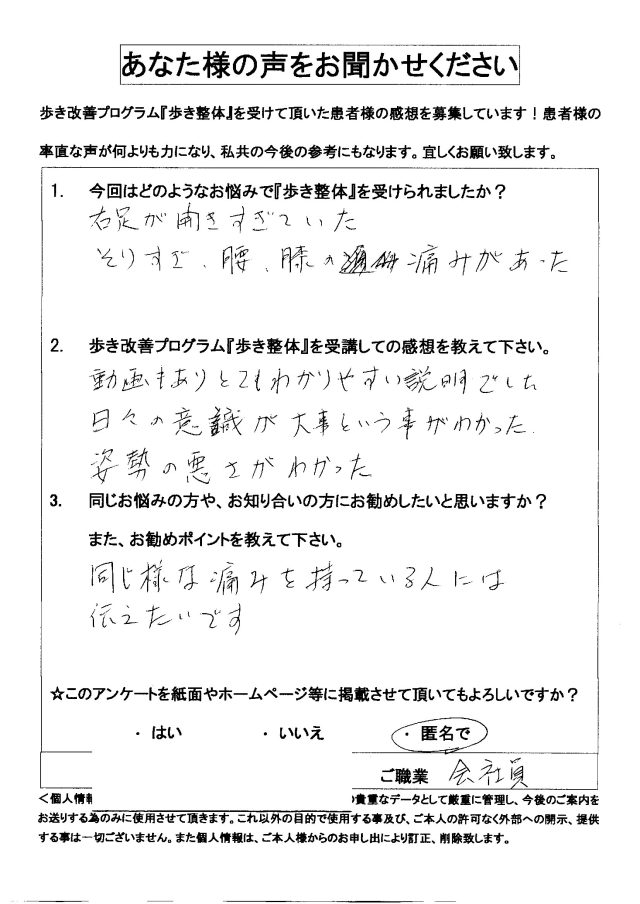 あなた様の声をお聞かせください
歩き改善プログラム『歩き整体』を受けて頂いた患者様の感想を募集しています！患者様の
率直な声が何よりも力になり、私共の今後の参考にもなります。宜しくお願い致します。
1. 今回はどのようなお悩みで『歩き整体』を受けられましたか？
右足が開きすぎていた
そりすぎ、腰、膝の痛みがあった
2. 歩き改善プログラム『歩き整体』を受講しての感想を教えて下さい。
動画もありとてもわかりやすい説明でした
日々の意識が大事という事がわかった.
姿勢の悪さがわかった
3. 同じお悩みの方や、お知り合いの方にお勧めしたいと思いますか？
また、お勧めポイントを教えて下さい。
同じ様な痛みを持っている人には
伝えたいです
☆このアンケートを紙面やホームページ等に掲載させて頂いてもよろしいですか？
・はい ・いいえ ・匿名で
ご職業 会社員
＜個人情報 の貴重なデータとして厳重に管理し、今後のご案内を
お送りする為のみに使用させて頂きます。これ以外の目的で使用する事及び、ご本人の許可なく外部への開示、提供
する事は一切ございません。また個人情報は、ご本人様からのお申し出により訂正、削除致します。